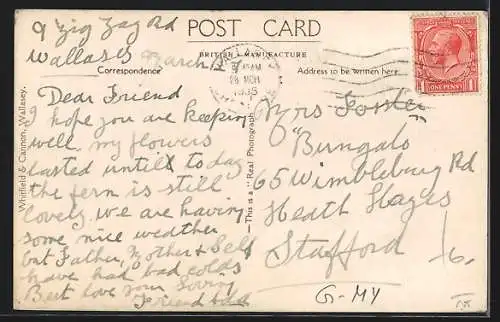 9 Zig Zag Rd
Wallasey
March
POST CARD
BRITISH MANUFACTURE
Correspondence
Address to be written here
WALLASEY
AM
28 MCH
1935
ONE PENNY
Dear Friend
I hope you are keeping
well. my flowers
lasted untill to day
the fern is still
lovely. we are having
some nice weather
but Father, Mother & Self
have had bad colds
Best love your loving
Friend
Whitfield & Cannon, Wallasey.
This is a "Real Photograph"
Mrs Foster
"Bungalo
65 Wimblebury Rd
Heath Hayes
Stafford
16.
G-MY